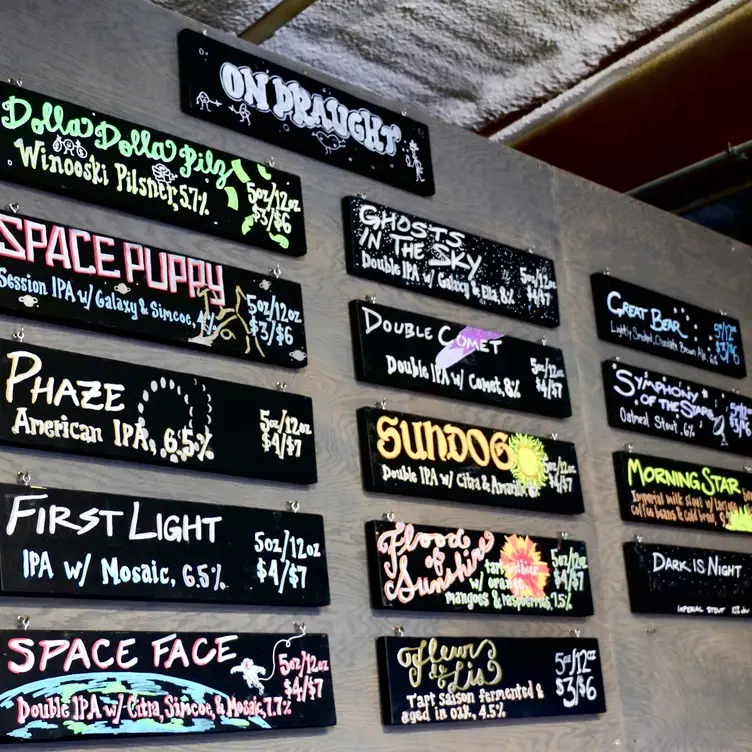 ON DRAUGHT
Dolla Dolla Pilz
Winooski Pilsner, 5.7%
5oz/12oz
$3/$6
SPACE PUPPY
Session IPA w/ Galaxy & Simcoe, 4%
5oz/12oz
$3/$6
PHAZE
American IPA, 6.5%
5oz/12oz
$4/$7
FIRST LIGHT
IPA w/ Mosaic, 6.5%
5oz/12oz
$4/$7
SPACE FACE
Double IPA w/ Citra, Simcoe, & Mosaic, 7.7%
5oz/12oz
$4/$7
GHOSTS
IN THE SKY
Double IPA w/ Galaxy & Ella, 8%
5oz/12oz
$4/$7
DOUBLE COMET
Double IPA w/ Comet, 8%
5oz/12oz
$4/$7
SUNDOG
Double IPA w/ Citra & Amarillo
5oz/12oz
$4/$7
Flood
of
Sunshine
tart
w/ orange
mangoes & raspberries, 7.5%
5oz/12oz
$4/$7
Fleur
de
Lis
Tart saison fermented &
aged in oak, 4.5%
5oz/12oz
$3/$6
GREAT BEAR
Lightly Smoked, Chocolate Brown Ale
5/12oz
$3/$6
SYMPHONY
OF THE STARS
Oatmeal Stout, 6%
5oz/12oz
MORNING STAR
Imperial milk stout w/
coffee beans &
DARK IS NIGHT
IMPERIAL STOUT